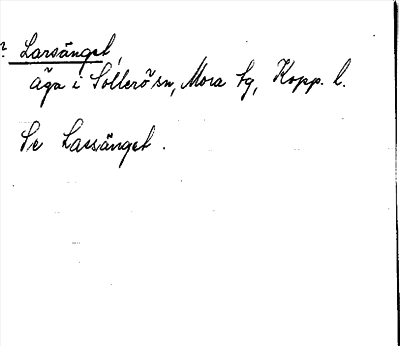 ? Larsänget,
äga i Sollerö sn, Mora tg, Kopp. l.
Se Lassänget.